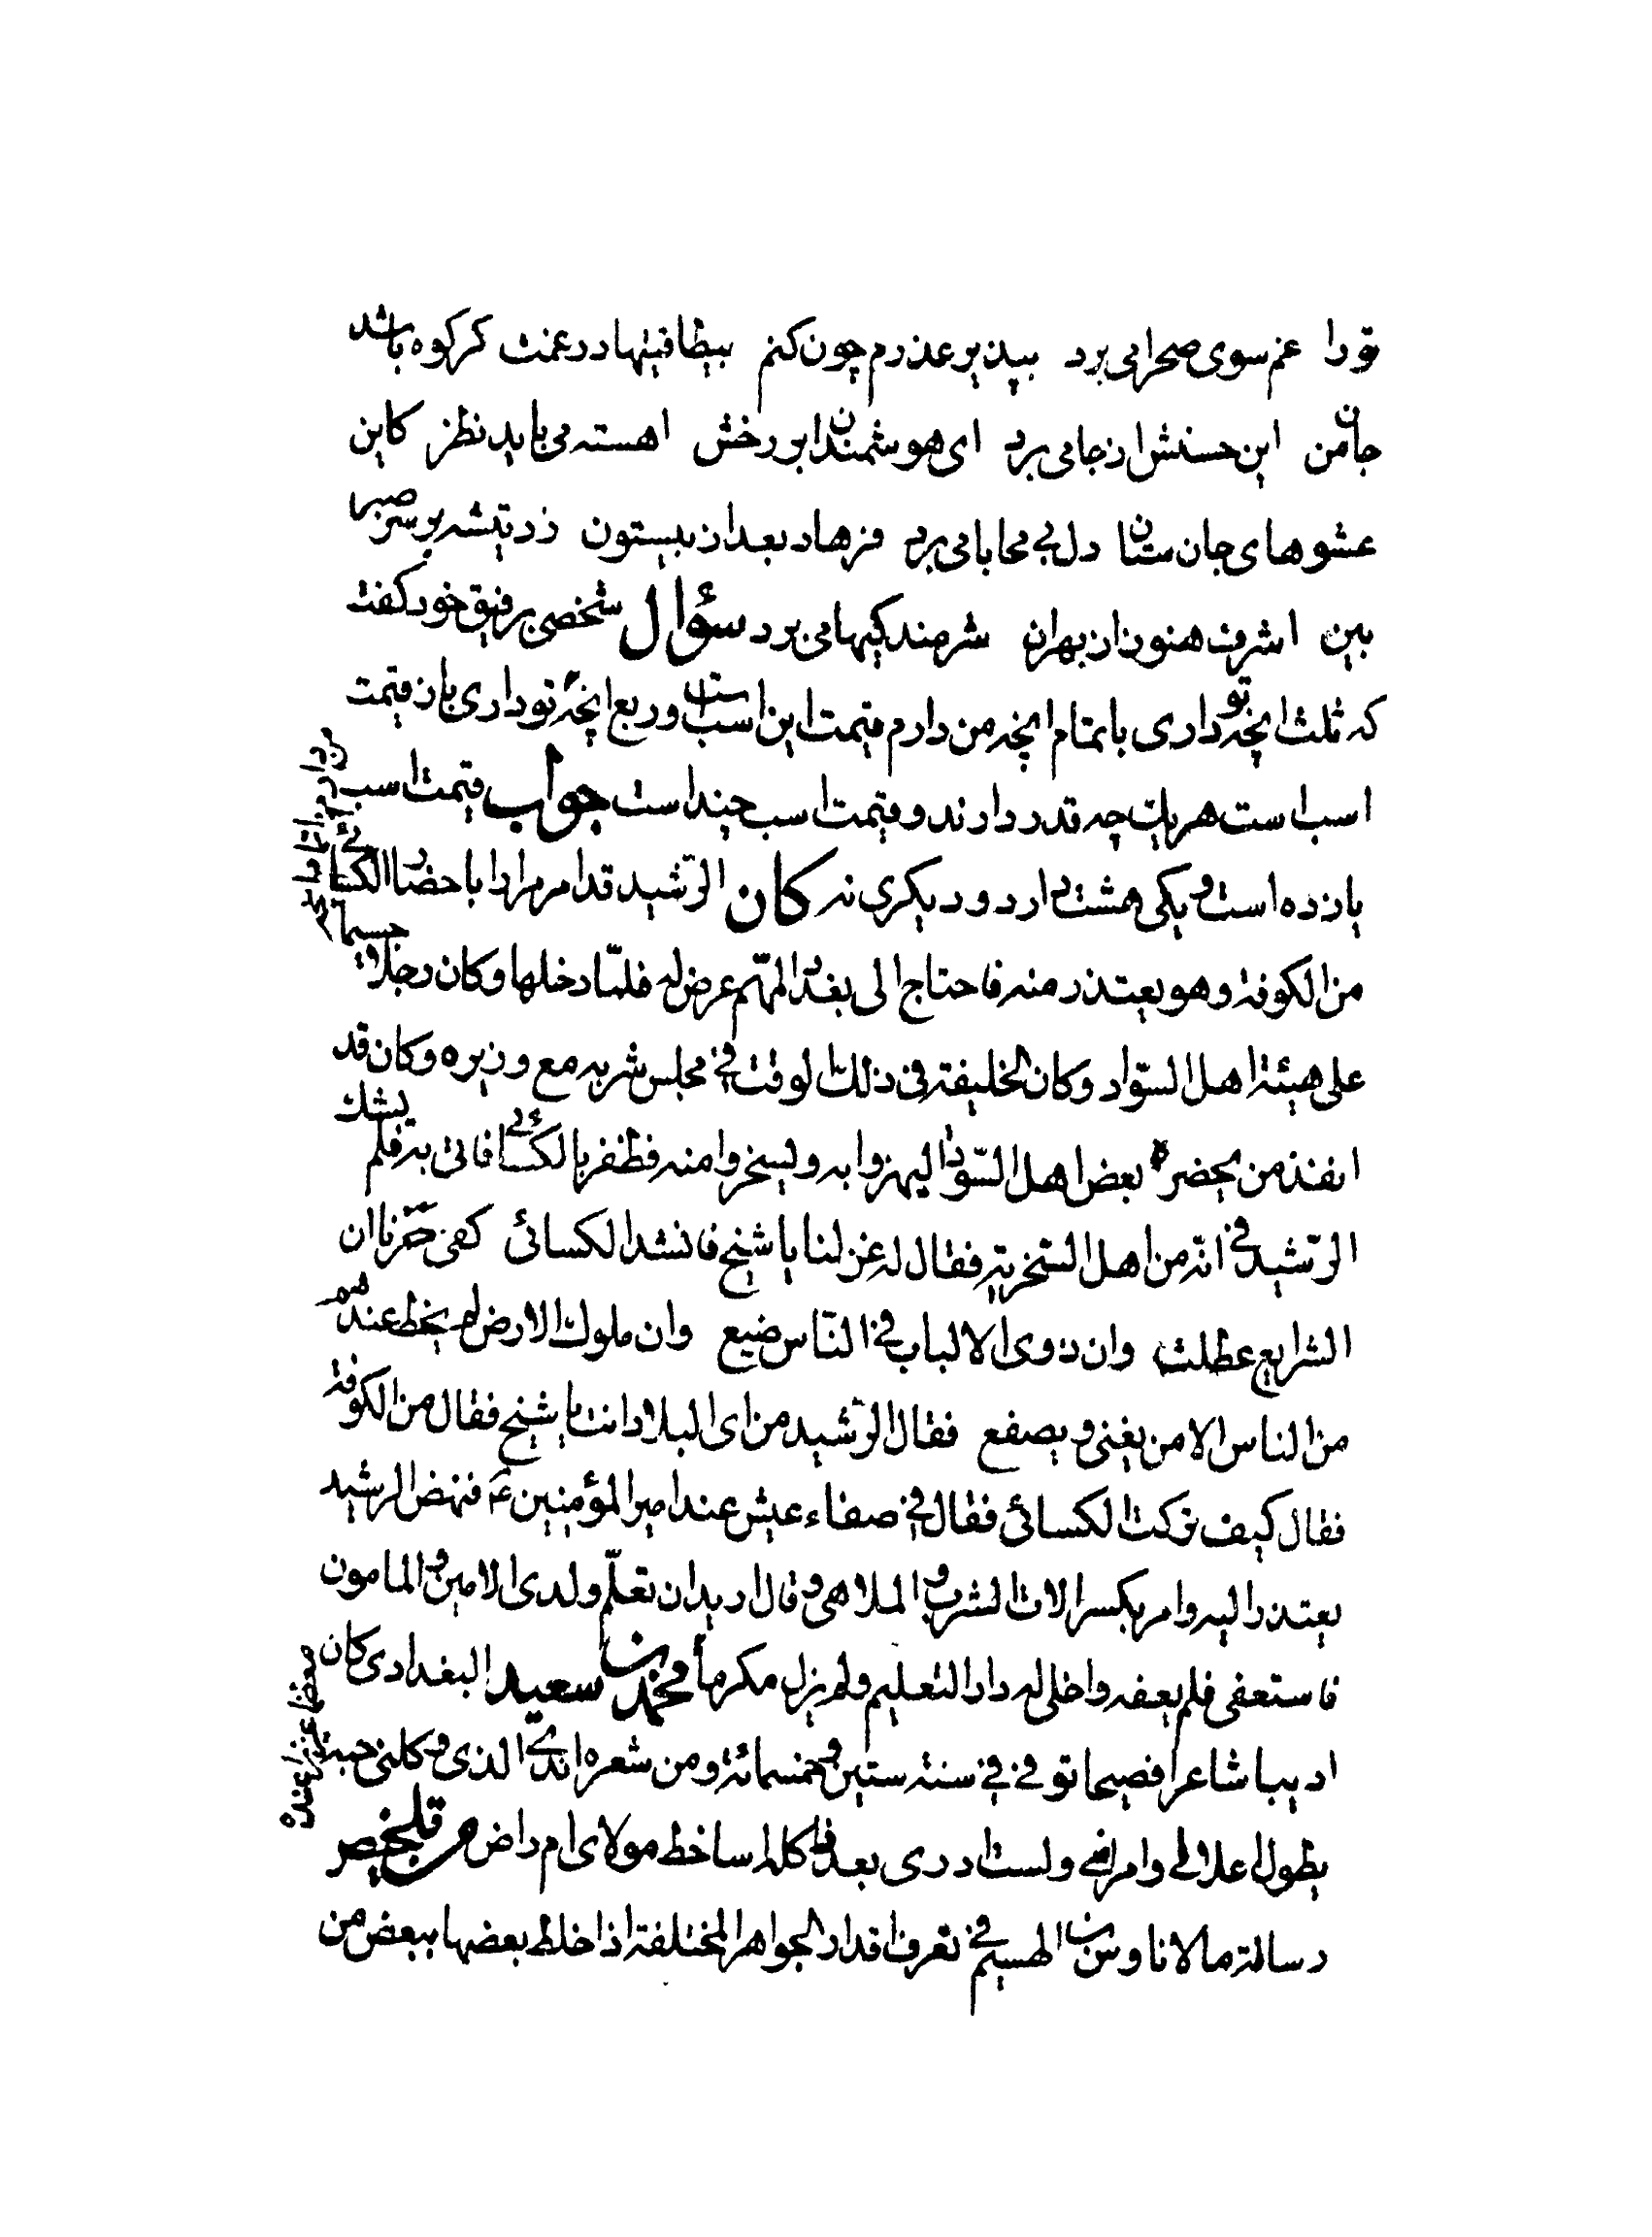 تو را غم سوی صحرا می برد بپذیر عذرم چون کنم بیطاقتیها در غمت گر کوه باشد
جان من این حسنش از جا می برد ای هوشمندان بر رخش اهسته می باید نظر کاین
عشوهای جان ستان دل بی محابا می برد فرهاد بعد از بیستون زد تیشه بر سر صبر
بین اشرف هنوز از بهر ان شرمندکیها می برد سؤال شخصی برفیق خود کفت
که ثلث انچه تو داری با تمام انچه من دارم قیمت این اسب است و ربع انچه تو داری با ن قیمت
اسب است هریک چه قدر دارند و قیمت اسب چند است جواب قیمت اسب
یازده است و یکی هشت دارد و دیکری نه کان الرّشید قد امر مرارا باحضار الکسائی
من الکوفة و هو یعتذر منه فاحتاج الی بغداد لمهّم عرض له فلمّا دخلها و کان رجلا جسیما
علی هیئة اهل السّواد و کان الخلیفة فی ذلک الوقت فی مجلس شربه مع وزیره و کان قد
انفذ من یحضر بعض اهل السّواد لیهزوا به و یسخروا منه فظفر بالکسائی فاتی به فلم یشک
الرّشید فی انّه من اهل السّخریّة فقال له غن لنا یا شیخ فانشد الکسائی کفی حَزَنا ان
الشرایع عطلت وان ذوی الالباب فی النّاس ضیع وان ملوک الارض لم یحظ عندهم
من الناس الا من یغنی و یصفع فقال الرّشید من ای البلاد انت یا شیخ فقال من الکوفة
فقال کیف ترکت الکسائی فقال فی صفاء عیش عند امیر المؤمنین فنهض الرشید
یعتذر الیه و امر بکسر الات الشرب و الملاهی و قال ارید ان تعلّم ولدی الامین و المامون
فاستعفی فلم یعفه و اخلی له دار التعلیم و لم یزل مکرما محمّد بن سعید البغدادی کان
ادیبا شاعرا فصیحا توفی فی سنة ستین و خمسمائة و من شعره افدی الذی وکلنی حبه
بطول اعلالی و امراضی و لست ادری بعد ذا کله اساخط مولای ام راض من تلخیص
رسالة مالاناوس الی فی تعرف اقدار الجواهر المختلفة اذا خلط بعضها ببعض من